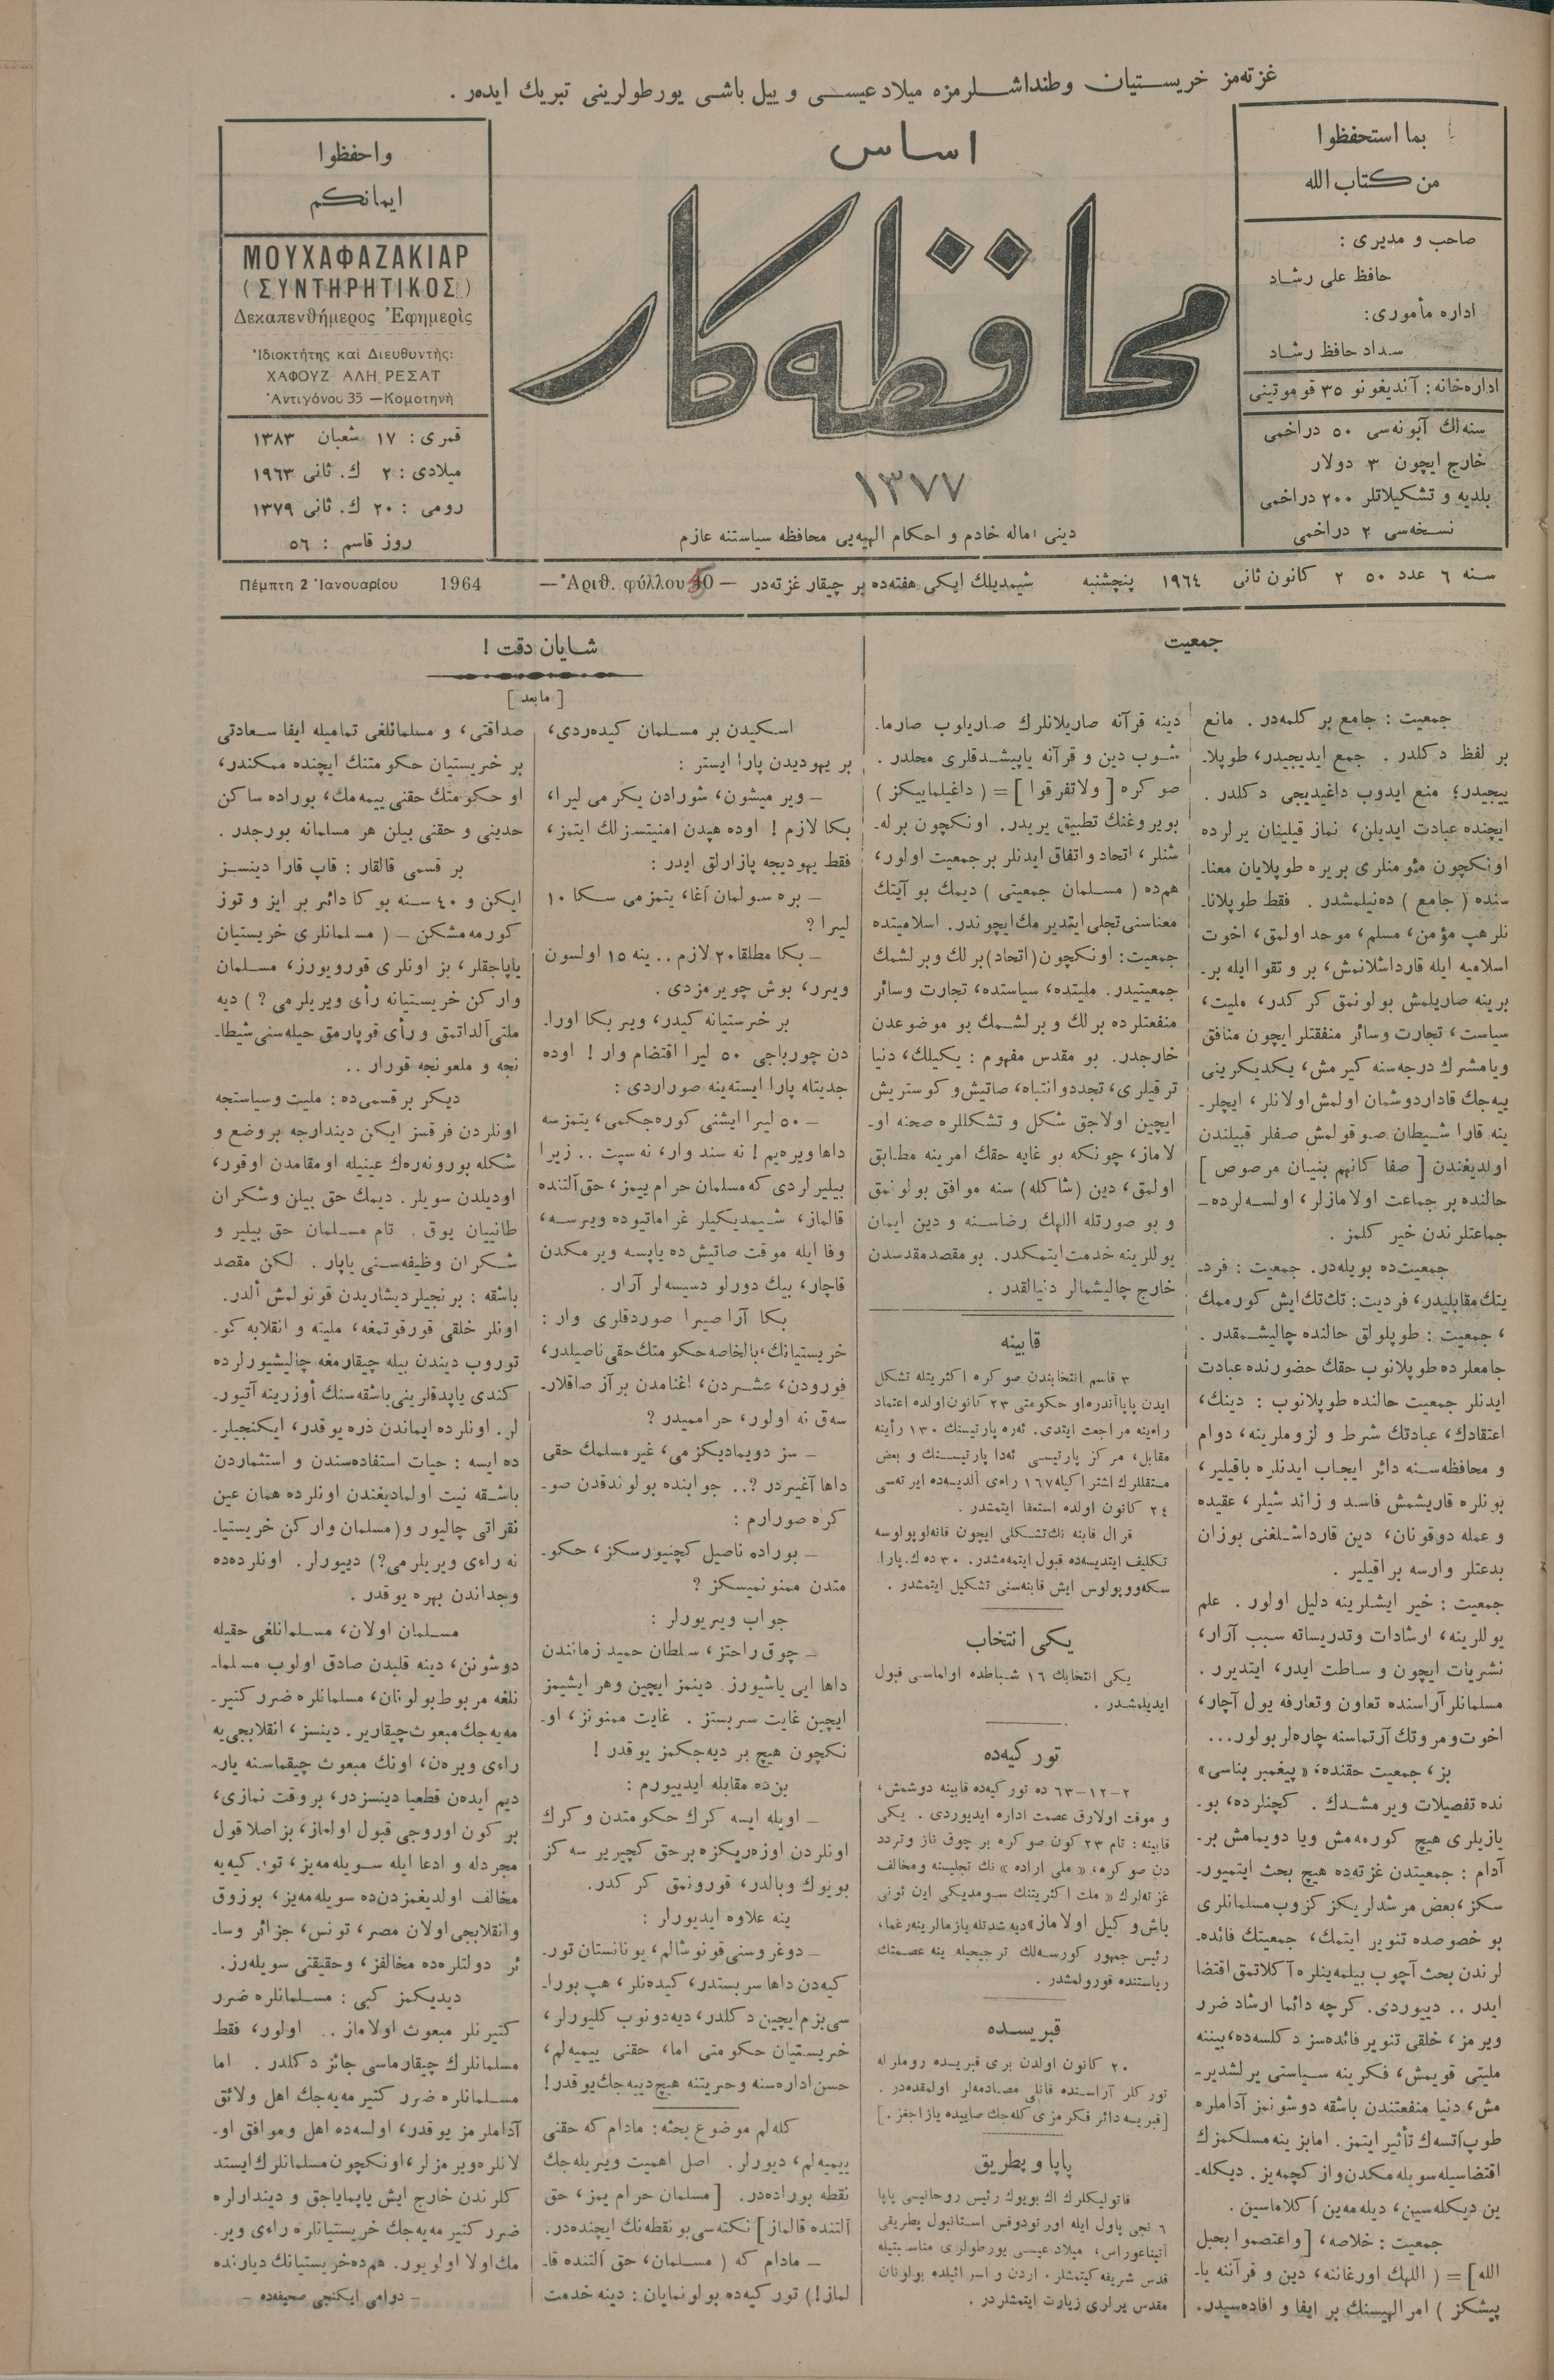 غزته‌مز خريستيان وطنداشلرمزه ميلاد عيسى و ييل باشى يورطولرينى تبريك ايده‌ر .
بما استحفظوا
من كتاب الله
صاحب و مديرى :
حافظ على رشاد
اداره مأمورى:
سداد حافظ رشاد
اداره‌خانه: آنديغونو ٣٥ قوموتينى
سنه‌لك آبونه‌سى ٥٠ دراخمى
خارج ايچون ٣ دولار
بلديه و تشكيلاتلر ٢٠٠ دراخمى
نسخه‌سى ٢ دراخمى
اساس
محافظه‌كار
١٣٧٧
دينى اماله خادم و احكام الهيه‌يى محافظه سياستنه عازم
واحفظوا
ايمانكم
ΜΟΥΧΑΦΑΖΑΚΙΑΡ
(ΣΥΝΤΗΡΗΤΙΚΟΣ)
Δεκαπενθήμερος Ἐφημερὶς
Ἰδιοκτήτης καὶ Διευθυντὴς:
ΧΑΦΟΥΖ ΑΛΗ ΡΕΣΑΤ
Ἀντιγόνου 35 —Κομοτηνὴ
قمرى: ١٧ شعبان ١٣٨٣
ميلادى: ٢ ك. ثانى ١٩٦٣
رومى : ٢٠ ك. ثانى ١٣٧٩
روز قاسم : ٥٦
سنه ٦ عدد ٥٠ ٢ كانون ثانى ١٩٦٤ پنچشنبه شيمديلك ايكى هفته‌ده بر چيقار غزته‌در — Ἀριθ. φύλλου 50 — 1964 Πέμπτη 2 Ἰανουαρίου
جمعيت
جمعيت : جامع بر كلمه‌در . مانع
بر لفظ دكلدر . جمع ايديجيدر، طوپلا-
ييجيدر؛ منع ايدوب داغيديجى دكلدر .
ايچنده عبادت ايديلن، نماز قيلينان يرلرده
اونكچون مئومنلرى بريره طوپلايان معنا-
سنده ( جامع ) ده‌نيلمشدر . فقط طوپلانا-
نلر هپ مؤمن، مسلم، موحد اولمق، اخوت
اسلاميه ايله قارداشلانمش، بر و تقوا ايله بر-
برينه صاريلمش بولونمق كركدر، مليت،
سياست، تجارت وسائر منفقتلر ايچون منافق
ويا مشرك درجه‌سنه كيرمش، يكديكرينى
ييه‌جك قادار دوشمان اولمش اولانلر، ايچلر-
ينه قارا شيطان صوقولمش صفلر قبيلندن
اولديغندن [ صفا كانهم بنيان مرصوص ]
حالنده بر جماعت اولامازلر، اولسه‌لرده -
جماعتلرندن خير كلمز .
جمعيت‌ده بويله‌در. جمعيت : فرد-
يتك مقابليدر، فرديت: تك‌تك‌ايش كورممك
، جمعيت : طوپلولق حالنده چاليشمقدر .
جامعلرده طوپلانوب حقك حضورنده عبادت
ايدنلر جمعيت حالنده طوپلانوب : دينك،
اعتقادك، عبادتك شرط و لزوملرينه، دوام
و محافظه‌سنه دائر ايجاب ايدنلره باقيلير،
بونلره قاريشمش فاسد و زائد شيلر، عقيده
و عمله دوقونان، دين قارداشلغنى بوزان
بدعتلر وارسه براقيلير .
جمعيت : خير ايشلرينه دليل اولور . علم
يوللرينه، ارشادات وتدريساته سبب آرار،
نشريات ايچون و ساطت ايدر، ايتديرر .
مسلمانلر آراسنده تعاون وتعارفه يول آچار،
اخوت و مروتك آرتماسنه چاره‌لر بولور...
بز، جمعيت حقنده، « پيغمبر بناسى»
نده تفصيلات ويرمشدك . كچنلرده، بو-
يازيلرى هيچ كورمه‌مش ويا دويمامش بر-
آدام : جمعيتدن غزته‌ده هيچ بحث ايتميور-
سكز، بعض مرشدلر يكز كزوب مسلمانلرى
بو خصوصده تنوير ايتمك، جمعيتك فائده-
لرندن بحث آچوب بيلمه‌ينلره آكلاتمق اقتضا
ايدر .. دييوردى. كرچه دائما ارشاد ضرر
ويرمز، خلقى تنوير فائده‌سز دكلسه‌ده، بيننه
مليتى قويمش، فكرينه سياستى يرلشدير-
مش، دنيا منفعتندن باشقه دوشونمز آداملره
طوپ آتسه‌ك تأثير ايتمز . اما بز ينه مسلكمزك
اقتضاسيله سويله‌مكدن واز كچمه‌يز . ديكله-
ين ديكله‌سين، ديله‌مه‌ين آكلاماسين .
جمعيت : خلاصه، [ واعتصموا بحبل
الله ] = ( اللهك اورغاننه، دين و قرآننه يا-
پيشكز ) امر الهيسنك بر ايفا و افاده‌سيدر.
دينه قرآنه صاريلانلرك صاريلوب صارما-
شوب دين و قرآنه ياپيشدقلرى محلدر .
صوكره [ ولاتفرقوا ] = ( داغيلماييكز )
بويروغنك تطبيق يريدر. اونكچون بر له-
شنلر، اتحاد و اتفاق ايدنلر بر جمعيت اولور،
هم‌ده ( مسلمان جمعيتى ) ديمك بو آيتك
معناسنى تجلى ايتدير مك ايچوندر. اسلاميتده
جمعيت: اونكچون (اتحاد) برلك وبرلشمك
جمعيتيدر. مليتده، سياستده، تجارت وسائر
منفعتلرده برلك و برلشمك بو موضوعدن
خارجدر. بو مقدس مفهوم : يكيلك، دنيا
ترقيلرى، تجدد و انتباه، صاتيش و كوستريش
ايچين اولاجق شكل و تشكللره صحنه او-
لاماز، چونكه بو غايه حقك امرينه مطابق
اولمق، دين (شاكله) سنه موافق بولونمق
و بو صورتله اللهك رضاسنه و دين ايمان
يوللرينه خدمت ايتمكدر. بو مقصد مقدسدن
خارج چاليشمالر دنيالقدر .
قابينه
٣ قاسم انتخابندن صوكره اكثريتله تشكل
ايدن پاپا آندره‌او حكومتى ٢٣ كانون‌اولده اعتماد
راه‌ينه مراجعت ايتدى. ئه‌ره پارتيسنك ١٣٠ رأينه
مقابل، مركز پارتيسى ئه‌دا پارتيسنك و بعض
مستقللرك اشتراكيله ١٦٧ راءى آلديسه‌ده ايرته‌سى
٢٤ كانون اولده استعفا ايتمتدر .
قرال قابنه نك‌تشكلى ايچون قانه‌لوپولوسه
تكليف ايتديسه‌ده قبول ايتمه‌مشدر. ٣٠ ده ك. پارا
سكه‌ووپولوس ايش قابنه‌سنى تشكيل ايتمشدر .
يكى انتخاب
يكى انتخابك ١٦ شباطده اولماسى قبول
ايديلمشدر .
توركيه‌ده
٢–١٢–٦٣ ده توركيه‌ده قابينه دوشمش،
و موقت اولارق عصمت اداره ايديوردى . يكى
قابينه : تام ٢٣ كون صوكره بر چوق ناز و تردد
دن صوكره، « ملى اراده » نك تجليسنه ومخالف
غزته‌لرك « ملت اكثريتنك سومديكى اين ئونى
باش وكيل اولاماز» ديه شدتله يازمالرينه رغما،
رئيس جمهور كورسه‌لك ترجيحيله ينه عصمتك
رياستنده قورولمشدر .
قبريسده
٢٠ كانون اولدن برى قبريسده روملر له
توركلر آراسنده قانلى مصادمه‌لر اولمقده‌در .
[قبريسه دائر فكرمزى كله‌جك صاييده يازاجغز .]
پاپا و پطريق
قاتوليكلرك اك بويوك رئيس روحانيسى پاپا
٦ نجى پاول ايله اورتودوقس استانبول پطريقى
آتيناغوراس، ميلاد عيسى يورطولرى مناسبتيله
قدس شريفه كيتمشلر. اردن و اسرائيلده بولونان
مقدس يرلرى زيارت ايتمشلردر .
شايان دقت !
[ مابعد ]
اسكيدن بر مسلمان كيده‌ردى،
بر يهوديدن پارا ايستر :
— وير ميشون، شورادن يكرمى ليرا،
بكا لازم ! اوده هپدن امنيتسزلك ايتمز،
فقط يهوديجه پازارلق ايدر :
— بره سولمان آغا، يتمزمى سكا ١٠
ليرا ؟
— بكا مطلقا ٢٠ لازم .. ينه ١٥ اولسون
ويرر، بوش چويرمزدى .
بر خرستيانه كيدر، وير بكا اورا-
دن چورباجى ٥٠ ليرا اقتضام وار ! اوده
جديتله پارا ايسته‌ينه صوراردى :
— ٥٠ ليرا ايشنى كوره‌جكمى، يتمزسه
داها ويره‌يم ! نه سند وار، نه سپت .. زيرا
بيليرلردى كه مسلمان حرام ييمز، حق آلتنده
قالماز، شيمديكيلر غراماتيوده ويرسه،
وفا ايله موقت صاتيش ده ياپسه ويرمكدن
قاچار، بيك دورلو دسيسه‌لر آرار .
بكا آرا صيرا صوردقلرى وار :
خريستيانك، بالخاصه حكومتك حقى ناصيلدر،
فورودن، عشردن، اغنامدن بر آز صاقلار-
سه‌ق نه اولور، حرامميدر ؟
— سز دويماديكزمى، غير مسلمك حقى
داها آغيردر ؟.. جوابنده بولوندقدن صو-
كره صورارم :
— بوراده ناصيل كچنيورسكز، حكو-
متدن ممنونميسكز ؟
جواب ويريورلر :
— چوق راحتز، سلطان حميد زماننده‌ن
داها ايى ياشيورز . دينمز ايچين و هر ايشيمز
ايچين غايت سربستز . غايت ممنونز، او-
نكچون هيچ بر ديه‌جكمز يوقدر !
بن‌ده مقابله ايدييورم :
— اويله ايسه كرك حكومتدن و كرك
اونلردن اوزه‌ريكزه بر حق كچيرير سه كز
بويوك وبالدر، قورونمق كركدر.
ينه علاوه ايديورلر :
— دوغروسنى قونوشالم، يونانستان تور-
كيه‌دن داها سربستدر، كيده‌نلر، هپ بورا-
سى بزم ايچين دكلدر، ديه دونوب كليورلر،
خريستيان حكومتى اما، حقنى ييميه‌لم،
حسن اداره‌سنه و حريتنه هيچ دييه‌جك يوقدر!
كله‌لم موضوع بحثه : مادام كه حقنى
ييميه‌لم، ديورلر . اصل اهميت ويريله‌جك
نقطه بوراده‌در. [ مسلمان حرام ييمز، حق
آلتنده قالماز ] نكته‌سى بو نقطه‌نك ايچنده‌در.
— مادام كه ( مسلمان، حق آلتنده قا-
لماز!) توركيه‌ده بولونمايان : دينه خدمت
صداقتى، و مسلمانلغى تماميله ايفا سعادتى
بر خريستيان حكومتنك ايچنده ممكندر،
او حكومتك حقنى ييمه‌مك، بوراده ساكن
حدينى و حقنى بيلن هر مسلمانه بورجدر .
بر قسمى قالقار : قاپ قارا دينسز
ايكن و ٤٠ سنه بوكا دائر بر ايز و توز
كورمه‌مشكن — ( مسلمانلرى خريستيان
ياپاجقلر، بز اونلرى قورويورز، مسلمان
واركن خريستيانه رأى ويريلرمى ؟ ) ديه
ملتى آلداتمق و رأى قوپارمق حيله‌سنى شيطا-
نجه و ملعونجه قورار ..
ديكر بر قسمى‌ده : مليت وسياستجه
اونلردن فرقسز ايكن دیندارجه بر وضع و
شكله بورونه‌رك عينيله او مقامدن اوقور،
او ديلدن سويلر . ديمك حق بيلن و شكران
طانييان يوق . تام مسلمان حق بيلير و
شكران وظيفه‌سنى ياپار . لكن مقصد
باشقه : برنجيلر ديشاريدن قونولمش ألدر.
اونلر خلقى قورقوتمغه، مليته و انقلابه كو-
توروب ديندن بيله چيقارمغه چاليشيورلرده
كندى ياپدقلرينى باشقه‌سنك أوزرينه آتيور-
لر. اونلرده ايماندن ذره يوقدر، ايكنجيلر-
ده ايسه : حيات استفاده‌سندن و استثماردن
باشقه نيت اولماديغندن اونلرده همان عين
نقراتى چاليور و (مسلمان واركن خريستيا-
نه راءى ويريلرمى؟) دييورلر. اونلرده‌ده
وجداندن بهره يوقدر .
مسلمان اولان، مسلمانلغى حقيله
دوشونن، دينه قلبدن صادق اولوب مسلما-
نلغه مربوط بولونان، مسلمانلره ضرر كتير-
مه‌يه‌جك مبعوث چيقارير. دينسز، انقلابجى‌يه
راءى ويره‌ن، اونك مبعوث چيقماسنه يار-
ديم ايده‌ن قطعيا دينسزدر، بر وقت نمازى،
بر كون اوروجى قبول اولماز، بز اصلا قول
مجردله و ادعا ايله سويله‌مه‌يز، توركيه‌يه
مخالف اولديغمزدن‌ده سويله‌مه‌يز، بوزوق
وانقلابجى اولان مصر، تونس، جزائر وسا-
ئر دولتلره‌ده مخالفز، وحقيقتى سويله‌رز.
ديديكمز كبى : مسلمانلره ضرر
كتيرنلر مبعوث اولاماز .. اولور، فقط
مسلمانلرك چيقارماسى جائز دكلدر . اما
مسلمانلره ضرر كتيرمه‌يه‌جك اهل ولائق
آداملرمز يوقدر، اولسه‌ده اهل و موافق او-
لانلره ويرمزلر، اونكچون مسلمانلرك ايستد
كلرندن خارج ايش ياپمايا‌جق و دیندارلره
ضرر كتيرمه‌يه‌جك خريستيانلره راءى وير-
مك اولا اولويور. هم‌ده خريستيانك ديارنده
— دوامى ايكنجى صحيفه‌ده —